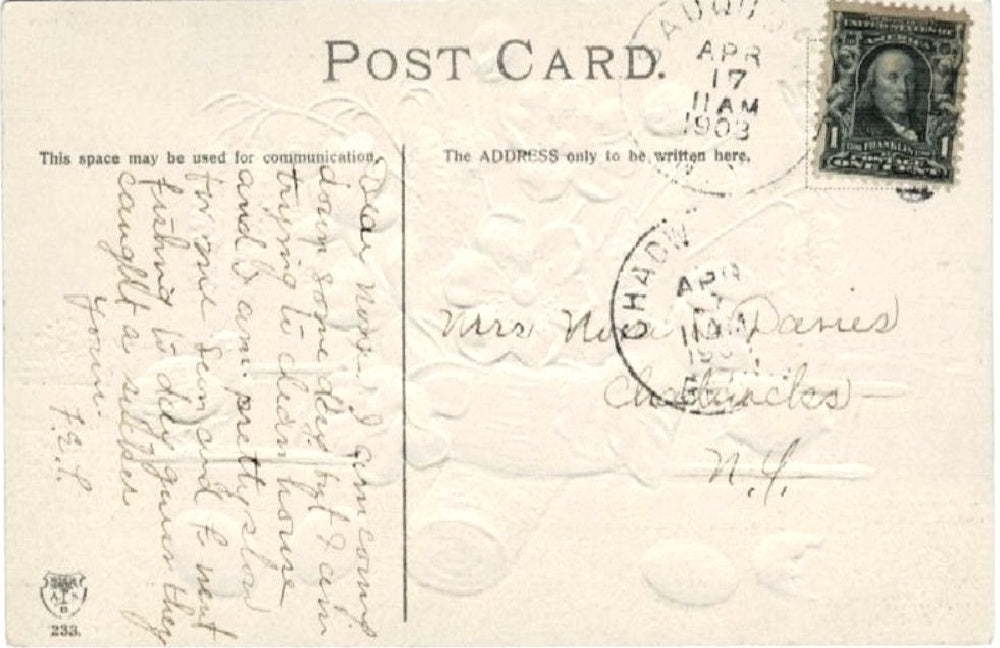 POST CARD.
This space may be used for communication.
The ADDRESS only to be written here.
AUQU
APR
17
11 AM
1908
UNITED STATES OF
AMERICA
1 FRANKLIN 1
CHADW
APR
11 AM
Mrs Nora Davies
Chadwicks
N.Y.
Dear Nora- I am coming
down some day but I am
trying to clean house
and I am pretty slow
for one Sean and E went
fishing to day guess they
caught a sucker.
Yours.
F.E.S.
233.